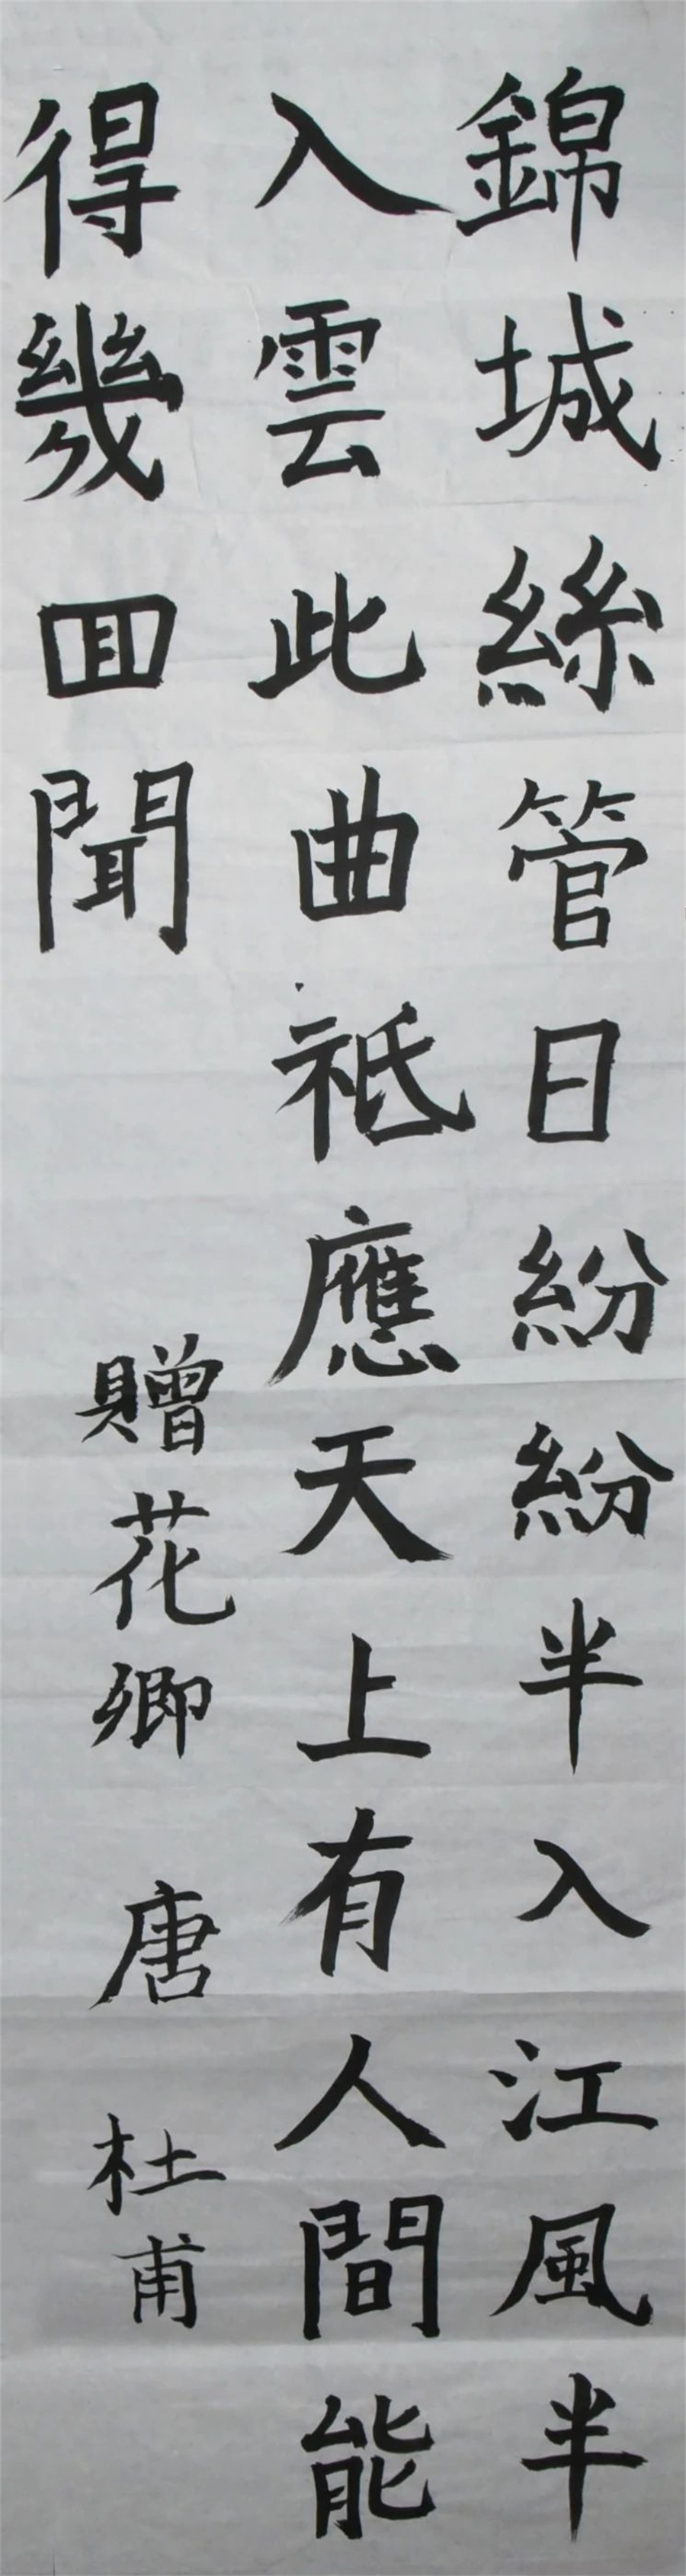 錦城絲管日紛紛半入江風半
入雲此曲祗應天上有人間能
得幾回聞
贈花卿 唐 杜甫